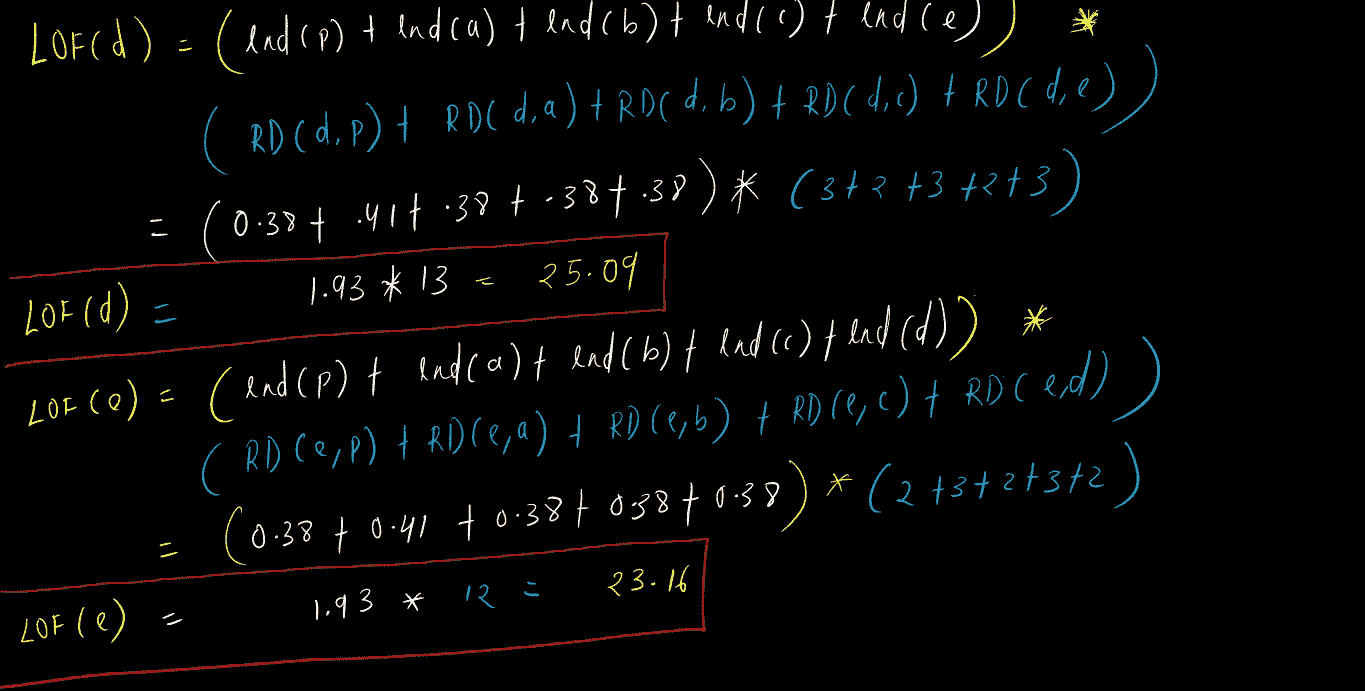 LOF(d) = (lrd(p) + lrd(a) + lrd(b) + lrd(c) + lrd(e)) *
(RD(d,p) + RD(d,a) + RD(d,b) + RD(d,c) + RD(d,e))
= (0.38 + .41 + .38 + .38 + .38) * (3+2+3+2+3)
LOF(d) = 1.93 * 13 = 25.09
LOF(e) = (lrd(p) + lrd(a) + lrd(b) + lrd(c) + lrd(d)) *
(RD(e,p) + RD(e,a) + RD(e,b) + RD(e,c) + RD(e,d))
= (0.38 + 0.41 + 0.38 + 0.38 + 0.38) * (2+3+2+3+2)
LOF(e) = 1.93 * 12 = 23.16